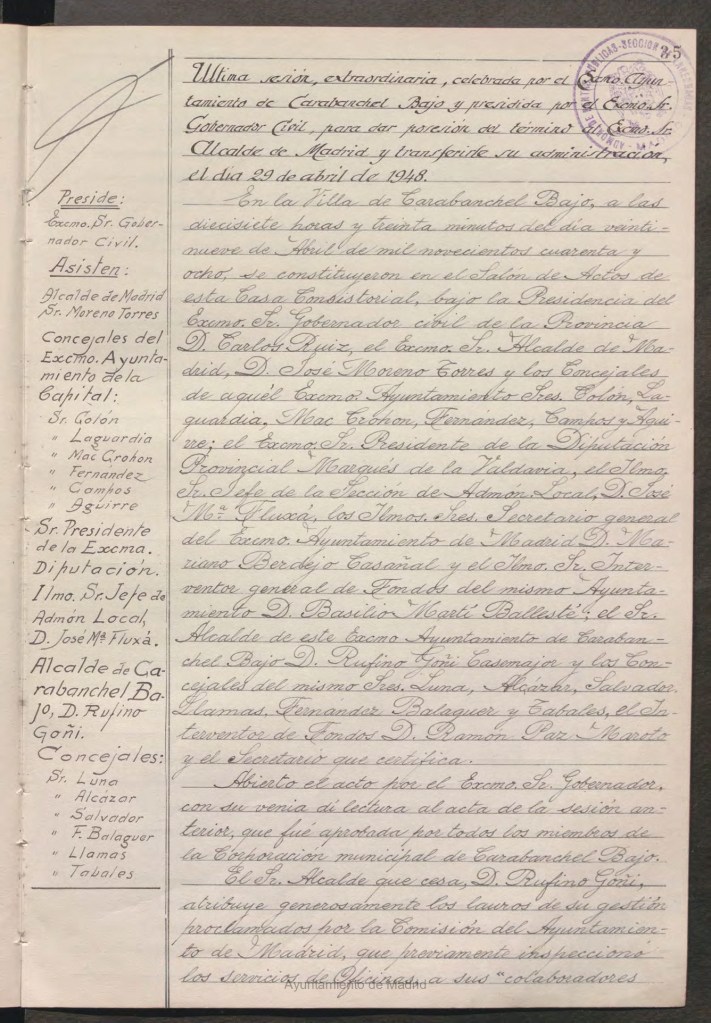 25
Ultima sesión, extraordinaria, celebrada por el Excmo. Ayun-
tamiento de Carabanchel Bajo y presidida por el Excmo. Sr.
Gobernador Civil, para dar posesión del término al Excmo. Sr.
Alcalde de Madrid y transferirle su administración,
el día 29 de abril de 1948.
Preside:
Excmo. Sr. Gober-
nador Civil.
Asisten:
Alcalde de Madrid
Sr. Moreno Torres
Concejales del
Excmo. Ayunta-
miento de la
Capital:
Sr. Colón
" Laguardia
" Mac Crohon
" Fernández
" Campos
" Aguirre
Sr. Presidente
de la Excma.
Diputación.
Ilmo. Sr. Jefe de
Admón Local,
D. José Mª Fluxá.
Alcalde de Ca-
rabanchel Ba-
jo, D. Rufino
Goñi.
Concejales:
Sr. Luna
" Alcázar
" Salvador
" F. Balaguer
" Llamas
" Tabales
En la Villa de Carabanchel Bajo, a las
diecisiete horas y treinta minutos del día veinti-
nueve de Abril de mil novecientos cuarenta y
ocho, se constituyeron en el Salón de Actos de
esta Casa Consistorial, bajo la Presidencia del
Excmo. Sr. Gobernador civil de la Provincia
D. Carlos Ruiz, el Excmo. Sr. Alcalde de Ma-
drid, D. José Moreno Torres y los Concejales
de aquél Excmo. Ayuntamiento Sres. Colón, La-
guardia, Mac Crohon, Fernández, Campos y Agui-
rre; el Excmo. Sr. Presidente de la Diputación
Provincial Marqués de la Valdavia, el Ilmo.
Sr. Jefe de la Sección de Admón. Local, D. José
Mª Fluxá, los Ilmos. Sres. Secretario general
del Excmo. Ayuntamiento de Madrid D. Ma-
riano Berdejo Casañal y el Ilmo. Sr. Inter-
ventor general de Fondos del mismo Ayunta-
miento D. Basilio Martí Ballesté; el Sr.
Alcalde de este Excmo Ayuntamiento de Caraban-
chel Bajo D. Rufino Goñi Casemajor y los Con-
cejales del mismo Sres. Luna, Alcázar, Salvador,
Llamas, Fernandez Balaguer y Tabales, el In-
terventor de Fondos D. Ramón Paz Maroto
y el Secretario que certifica.
Abierto el acto por el Excmo. Sr. Gobernador,
con su venia di lectura al acta de la sesión an-
terior, que fué aprobada por todos los miembros de
la Corporación municipal de Carabanchel Bajo.
El Sr. Alcalde que cesa, D. Rufino Goñi,
atribuye generosamente los lauros de su gestión
proclamados por la Comisión del Ayuntamien-
to de Madrid, que previamente inspeccionó
los servicios de Oficinas, a sus "colaboradores
Ayuntamiento de Madrid